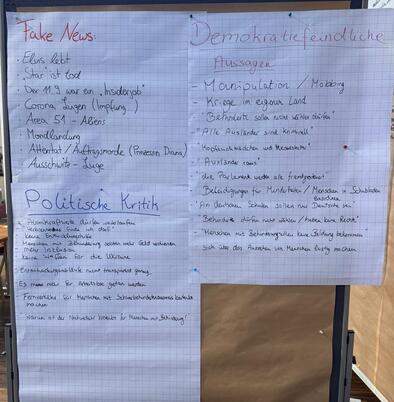 Fake News:
· Elvis lebt
· "Star" ist tod
· Der 11.9 war ein "Insiderjob"
· Corona Lügen (Impfung)
· Area 51 - Aliens
· Mondlandung
· Attentat / Auftragsmorde (Prinzessin Diana)
· Auschwitz-Lüge
Politische Kritik
Atomkraftwerke dürfen
finde ich doof
keine
Menschen mit Behinderung sollten mehr Geld verdienen
mehr Inklusion
keine Waffen für die Ukraine
nicht transparent genug
Es muss mehr für Arbeitslose getan werden
für Menschen mit Schwerbehindertenausweis kostenlos
machen
"Warum ist der für Menschen mit Behinderung?"
Demokratiefeindliche
Aussagen
- Manipulation / Mobbing
- Kriege im eigenen Land
- "Behinderte sollen nicht wählen dürfen"
- "Alle Ausländer sind kriminell"
- "Kopftuchmädchen und Messerstecher"
- "Ausländer raus"
- "die Parlament werden alle fremdgesteuert"
- Beleidigungen für Minderheiten / Menschen in Schubladen
- "An deutschen Schulen sollen nur Deutsche sein"
- "Behinderte dürfen nicht wählen / haben keine Rechte"
- "Menschen mit Behinderung sollen keine Bildung bekommen"
- Sich über das Aussehen von Menschen lustig machen